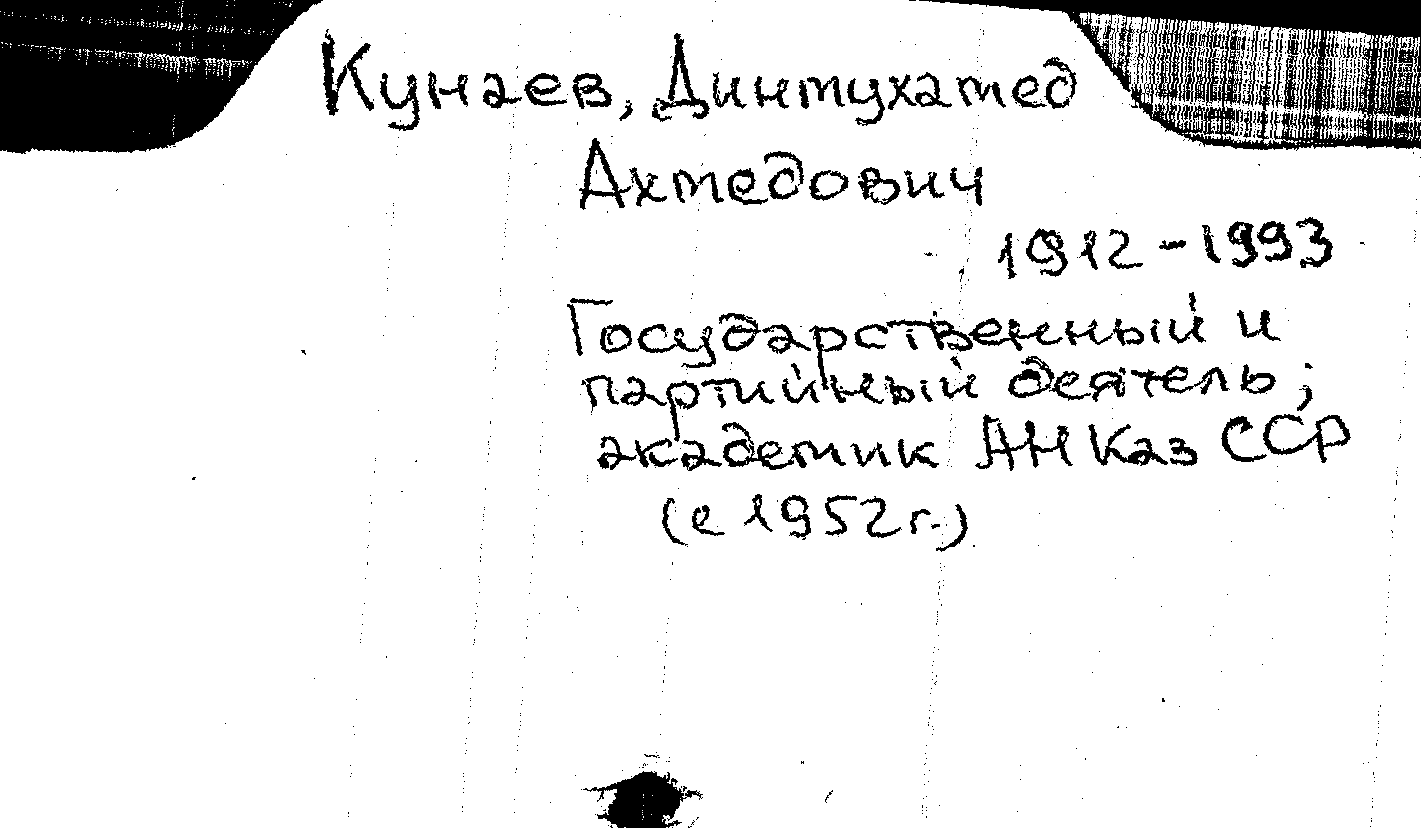 Кунаев, Динмухамед
Ахмедович
1912-1993
Государственный и
партийный деятель;
академик АН Каз ССР
(с 1952 г.)